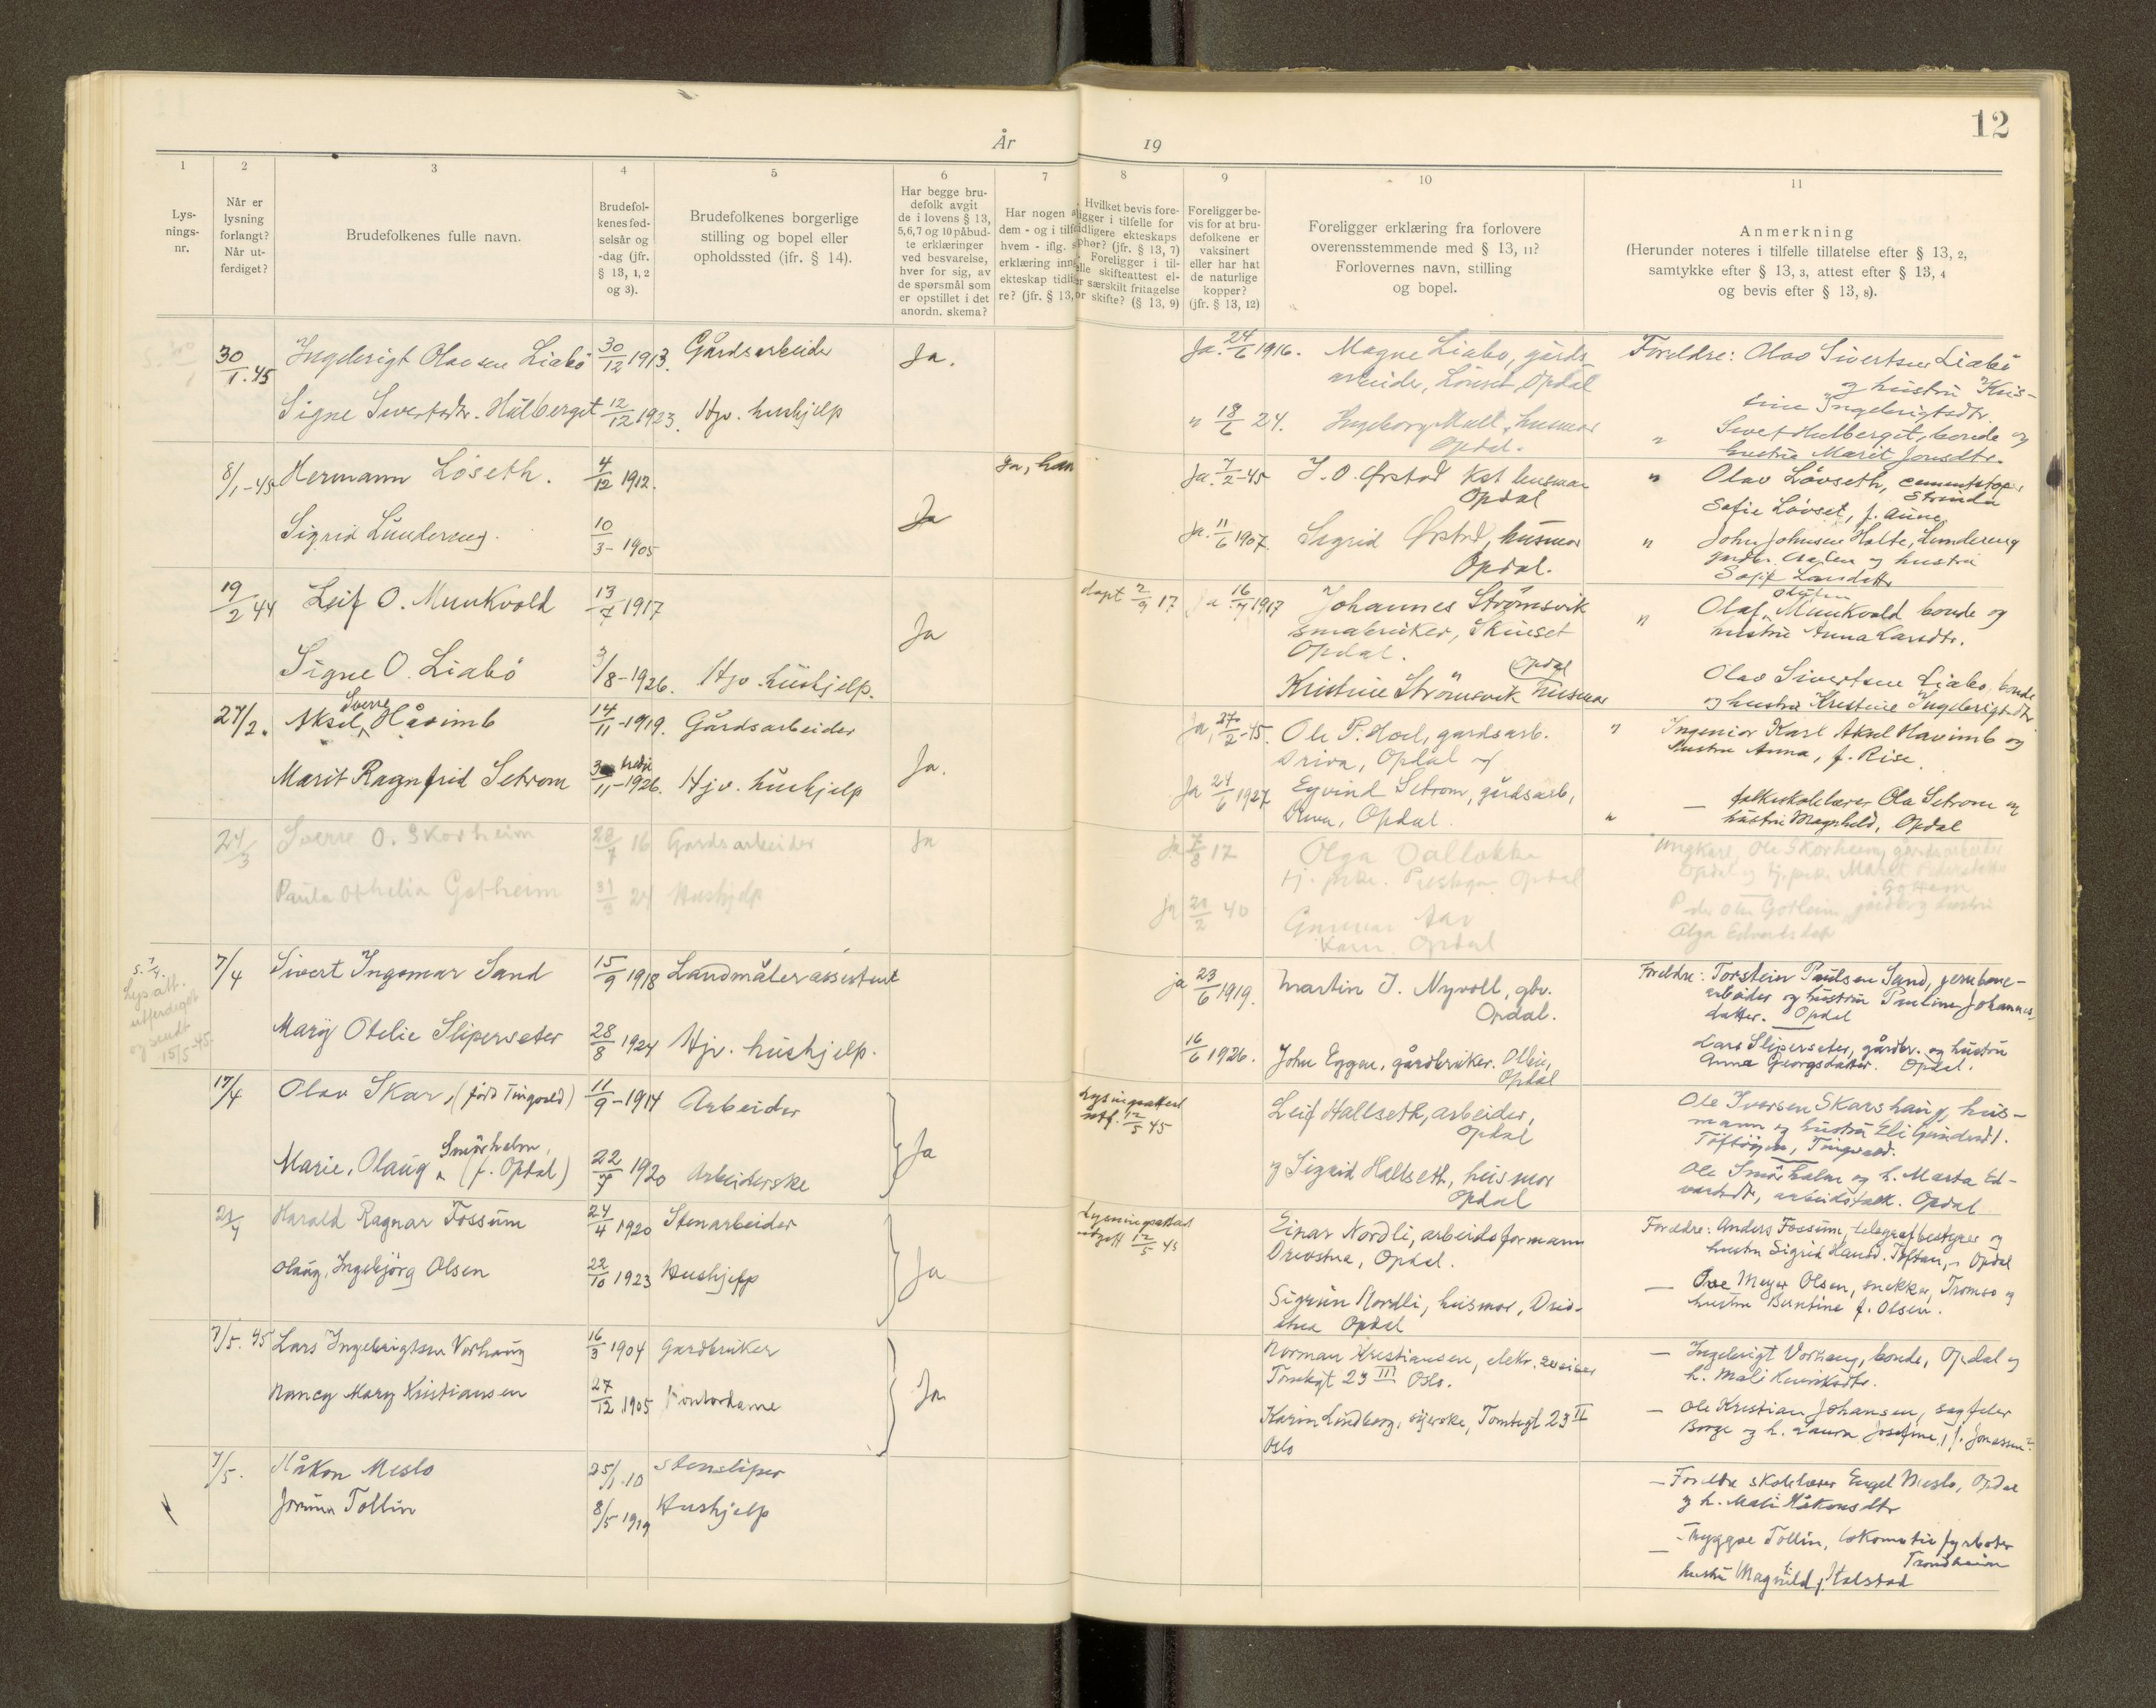 År 19
12
1 2 3 4 5 6 7 8 9 10 11
Lys-
nings-
nr.
Når er
lysning
forlangt?
Når ut-
ferdiget?
Brudefolkenes fulle navn.
Brudefol-
kenes fød-
selsår og
-dag (jfr.
§ 13, 1, 2
og 3).
Brudefolkenes borgerlige
stilling og bopel eller
opholdssted (jfr. § 14).
Har begge bru-
defolk avgit
de i lovens § 13,
5,6,7 og 10 påbud-
te erklæringer
ved besvarelse,
hver for sig, av
de spørsmål som
er opstillet i det
anordn. skema?
Har nogen
dem - og i tilf
hvem - iflg.
erklæring inn
ekteskap tidli
re? (jfr. § 13,
Hvilket bevis fore-
ligger i tilfelle for
tidligere ekteskaps
ophør? (jfr. § 13, 7)
Foreligger i til-
elle skifteattest el-
er særskilt fritagelse
or skifte? (§ 13, 9)
Foreligger be-
vis for at bru-
defolkene er
vaksinert
eller har hat
de naturlige
kopper?
(jfr. § 13, 12)
Foreligger erklæring fra forlovere
overensstemmende med § 13, 11?
Forlovernes navn, stilling
og bopel.
Anmerkning
(Herunder noteres i tilfelle tillatelse efter § 13, 2,
samtykke efter § 13, 3, attest efter § 13, 4
og bevis efter § 13, 8).
30/1.45 Ingebrigt Olavsen Liabö 30/12 1913. Gårdsarbeider Ja.
Ja. 24/6 1916. Magne Liabö, gårds
arbeider, Lönset, Opdal
Foreldre: Olav Sivertsen Liabö
og hustru Kris-
tine Ingebrigtsdtr.
Signe Sivertsdtr. Hulberget 12/12 1923. Hjv. hushjelp
" 18/6 24. Ingeborg Mell, husmor
Opdal.
" Sivert Hulberget, bonde og
hustru Marit Jonsdtr.
8/1-45 Hermann Löseth. 4/12 1912. Ja, han
Ja. 7/2-45 J. O. Ørstad Kst husmann
Opdal
" Olav Lövseth, cementstøper
Strinda
Sofie Lövset, f. Aune
Sigrid Lundereng. 10/3-1905 Ja
Ja. 11/6 1907. Sigrid Ørstad, husmor
Opdal.
" John Johnsen Holte, Lundereng
og hustru
19/2 44 Leif O. Munkvold 13/7 1917 Ja
døpt 2/9 17 Ja 16/7 1917 Johannes Strömsvik
småbruker, Skuset
Opdal.
" Olaf Olufsen Munkvold bonde og
hustru Anna Larsdtr.
Signe O. Liabö 3/8-1926. Hjv. hushjelp.
Kristine Strömsvik husmor Opdal
Olav Sivertsen Liabö, bonde
og hustru Kristine Ingebrigtsdtr
27/2. Aksel Sverre Håvimb 14/11-1919. Gårdsarbeider Ja.
Ja, 27/2-45. Ole P. Hoel, gardsarb.
Driva, Opdal og
" Ingeniør Karl Aksel Havimb og
hustru Anna, f. Rise.
Marit Ragnfrid Setrom 3 tredje/11-1926. Hjv. hushjelp
Ja 24/6 1927 Eyvind Setrom, gårdsarb,
Driva, Opdal.
" folkeskolelærer Ola Setrom og
hustru Magnhild, Opdal
24/3 Sverre O. Skorheim 28/7 16 Gardsarbeider Ja
Ja 7/8 17 Olga Vallokke
tj. pike. Prestegar. Opdal
Ungkarl Ole Skorheim, gardsarbeider
Opdal og tj. pike Marit Pedersdatter
Paula Othelia Gotheim 31/3 24 Hushjelp
Ja 21/2 40 Gunnar Aar
Kasin Opdal
Peder Olsen Gotheim
Olga Edvardsdatr
S. 7/4.
Lys.att.
utferdiget
og sendt
15/5-45.
7/4 Sivert Ingemar Sand 15/9 1918 Landmålerassistent
ja 23/6 1919. Martin J. Nyvoll, gbr.
Opdal.
Foreldre: Torstein Paulsen Sand, jernbane-
arbeider og hustru Pauline Johannes-
datter. Opdal
Mary Otelie Slipersæter 28/8 1924 Hjv. hushjelp.
16/6 1926. John Eggen, gårdbruker. Olbu,
Opdal
Lars Slipersæter, gårdbr. og hustru
Anna Georgsdatter. Opdal.
17/4 Olav Skar, (född Tingvold) 11/9-1914 Arbeider Ja
Lysingsattest
utf. 12/5 45
Leif Hallseth, arbeider,
Opdal
Ole Iversen Skarshaug, hus-
mann og hustru Eli Gundersd.
Töftöyen, Tingvold.
Marie, Olaug Smörholm, (f. Opdal) 22/7 1920 Arbeiderske
og Sigrid Hallseth, husmor
Opdal
Ole Smörholm og h. Marta Ed-
vardsdtr, arbeidsfolk. Opdal
21/4 Harald Ragnar Fossum 24/4 1920 Stenarbeider Ja
Lysningsattest
utgitt 12/5 45
Einar Nordli, arbeidsformann
Drivstua, Opdal.
Foreldre: Anders Fossum, telegrafbestyrer og
hustru Sigrid Hansd. Toftan, Opdal
Olaug, Ingebjörg Olsen 22/10 1923 Hushjelp
Sigrun Nordli, husmor, Driv-
stua Opdal
— Ove Meyer Olsen, snekker, Tromsö og
hustru Berntine f. Olsen.
7/5. 45 Lars Ingebrigtsen Vorhaug 16/3 1904 Gardbruker Ja
Norman Kristiansen, elektr. sveiser
Tomtegt 23 III Oslo.
— Ingebrigt Vorhaug, bonde, Opdal og
h. Mali Henriksdtr.
Nancy Mary Kristiansen 27/12 1905 Kontordame
Karin Lindberg, syerske, Tomtegt 23 II
Oslo
— Ole Kristian Johansen, sagfiler
Borge og h. Laura Josefine, f. Jonassen
7/5. Håkon Meslo 25/1.10 Stensliper
— Foreldre skolelærer Engel Meslo, Opdal
og h. Mali Håkonsdtr
Jorunn Tollin 8/5 1919 Hushjelp
— Tryggve Tollin, lokomotivfyrbøter
Trondheim
hustru Magnhild f. Stalstad